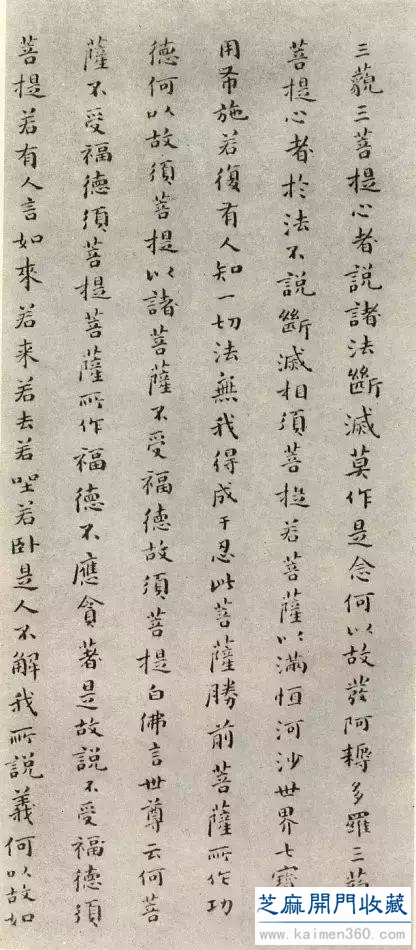 三藐三菩提心者說諸法斷滅莫作是念何以故發阿耨多羅三藐
菩提心者於法不說斷滅相須菩提若菩薩以滿恒河沙世界七寶
用布施若復有人知一切法無我得成于忍此菩薩勝前菩薩所作功
德何以故須菩提以諸菩薩不受福德故須菩提白佛言世尊云何菩
薩不受福德須菩提菩薩所作福德不應貪著是故說不受福德須
菩提若有人言如來若来若去若坐若卧是人不解我所說義何以故如
芝麻開門收藏
www.kaimen360.com